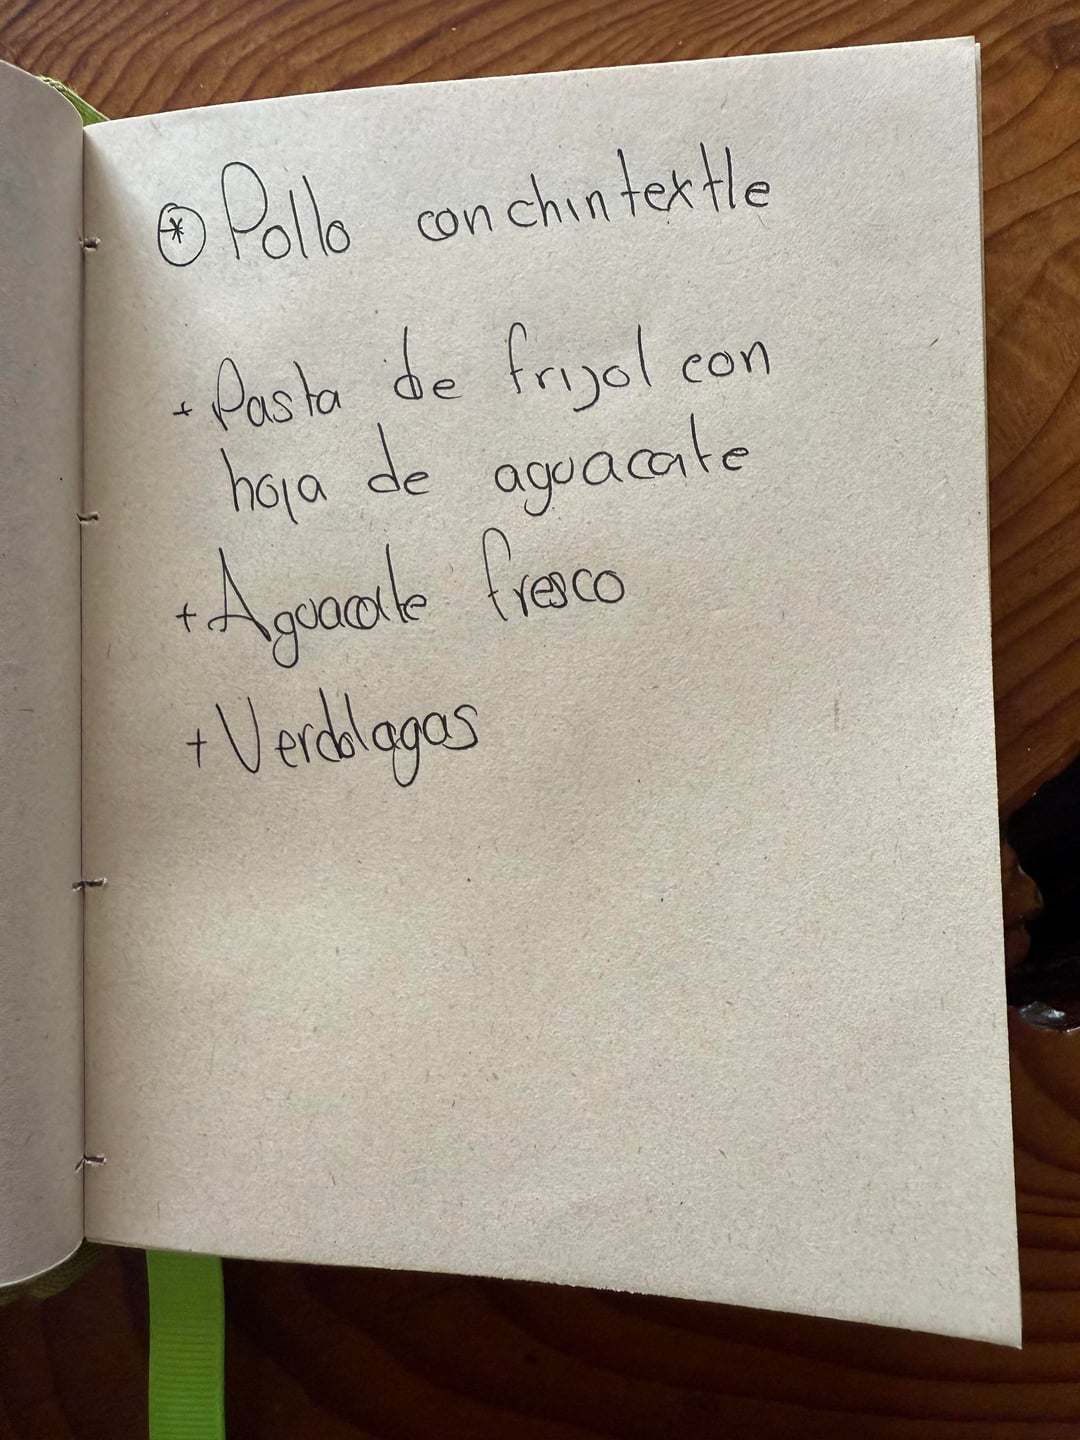 ⊛ Pollo con chintextle
+ Pasta de frijol con
hoja de aguacate
+ Aguacate fresco
+ Verdolagas